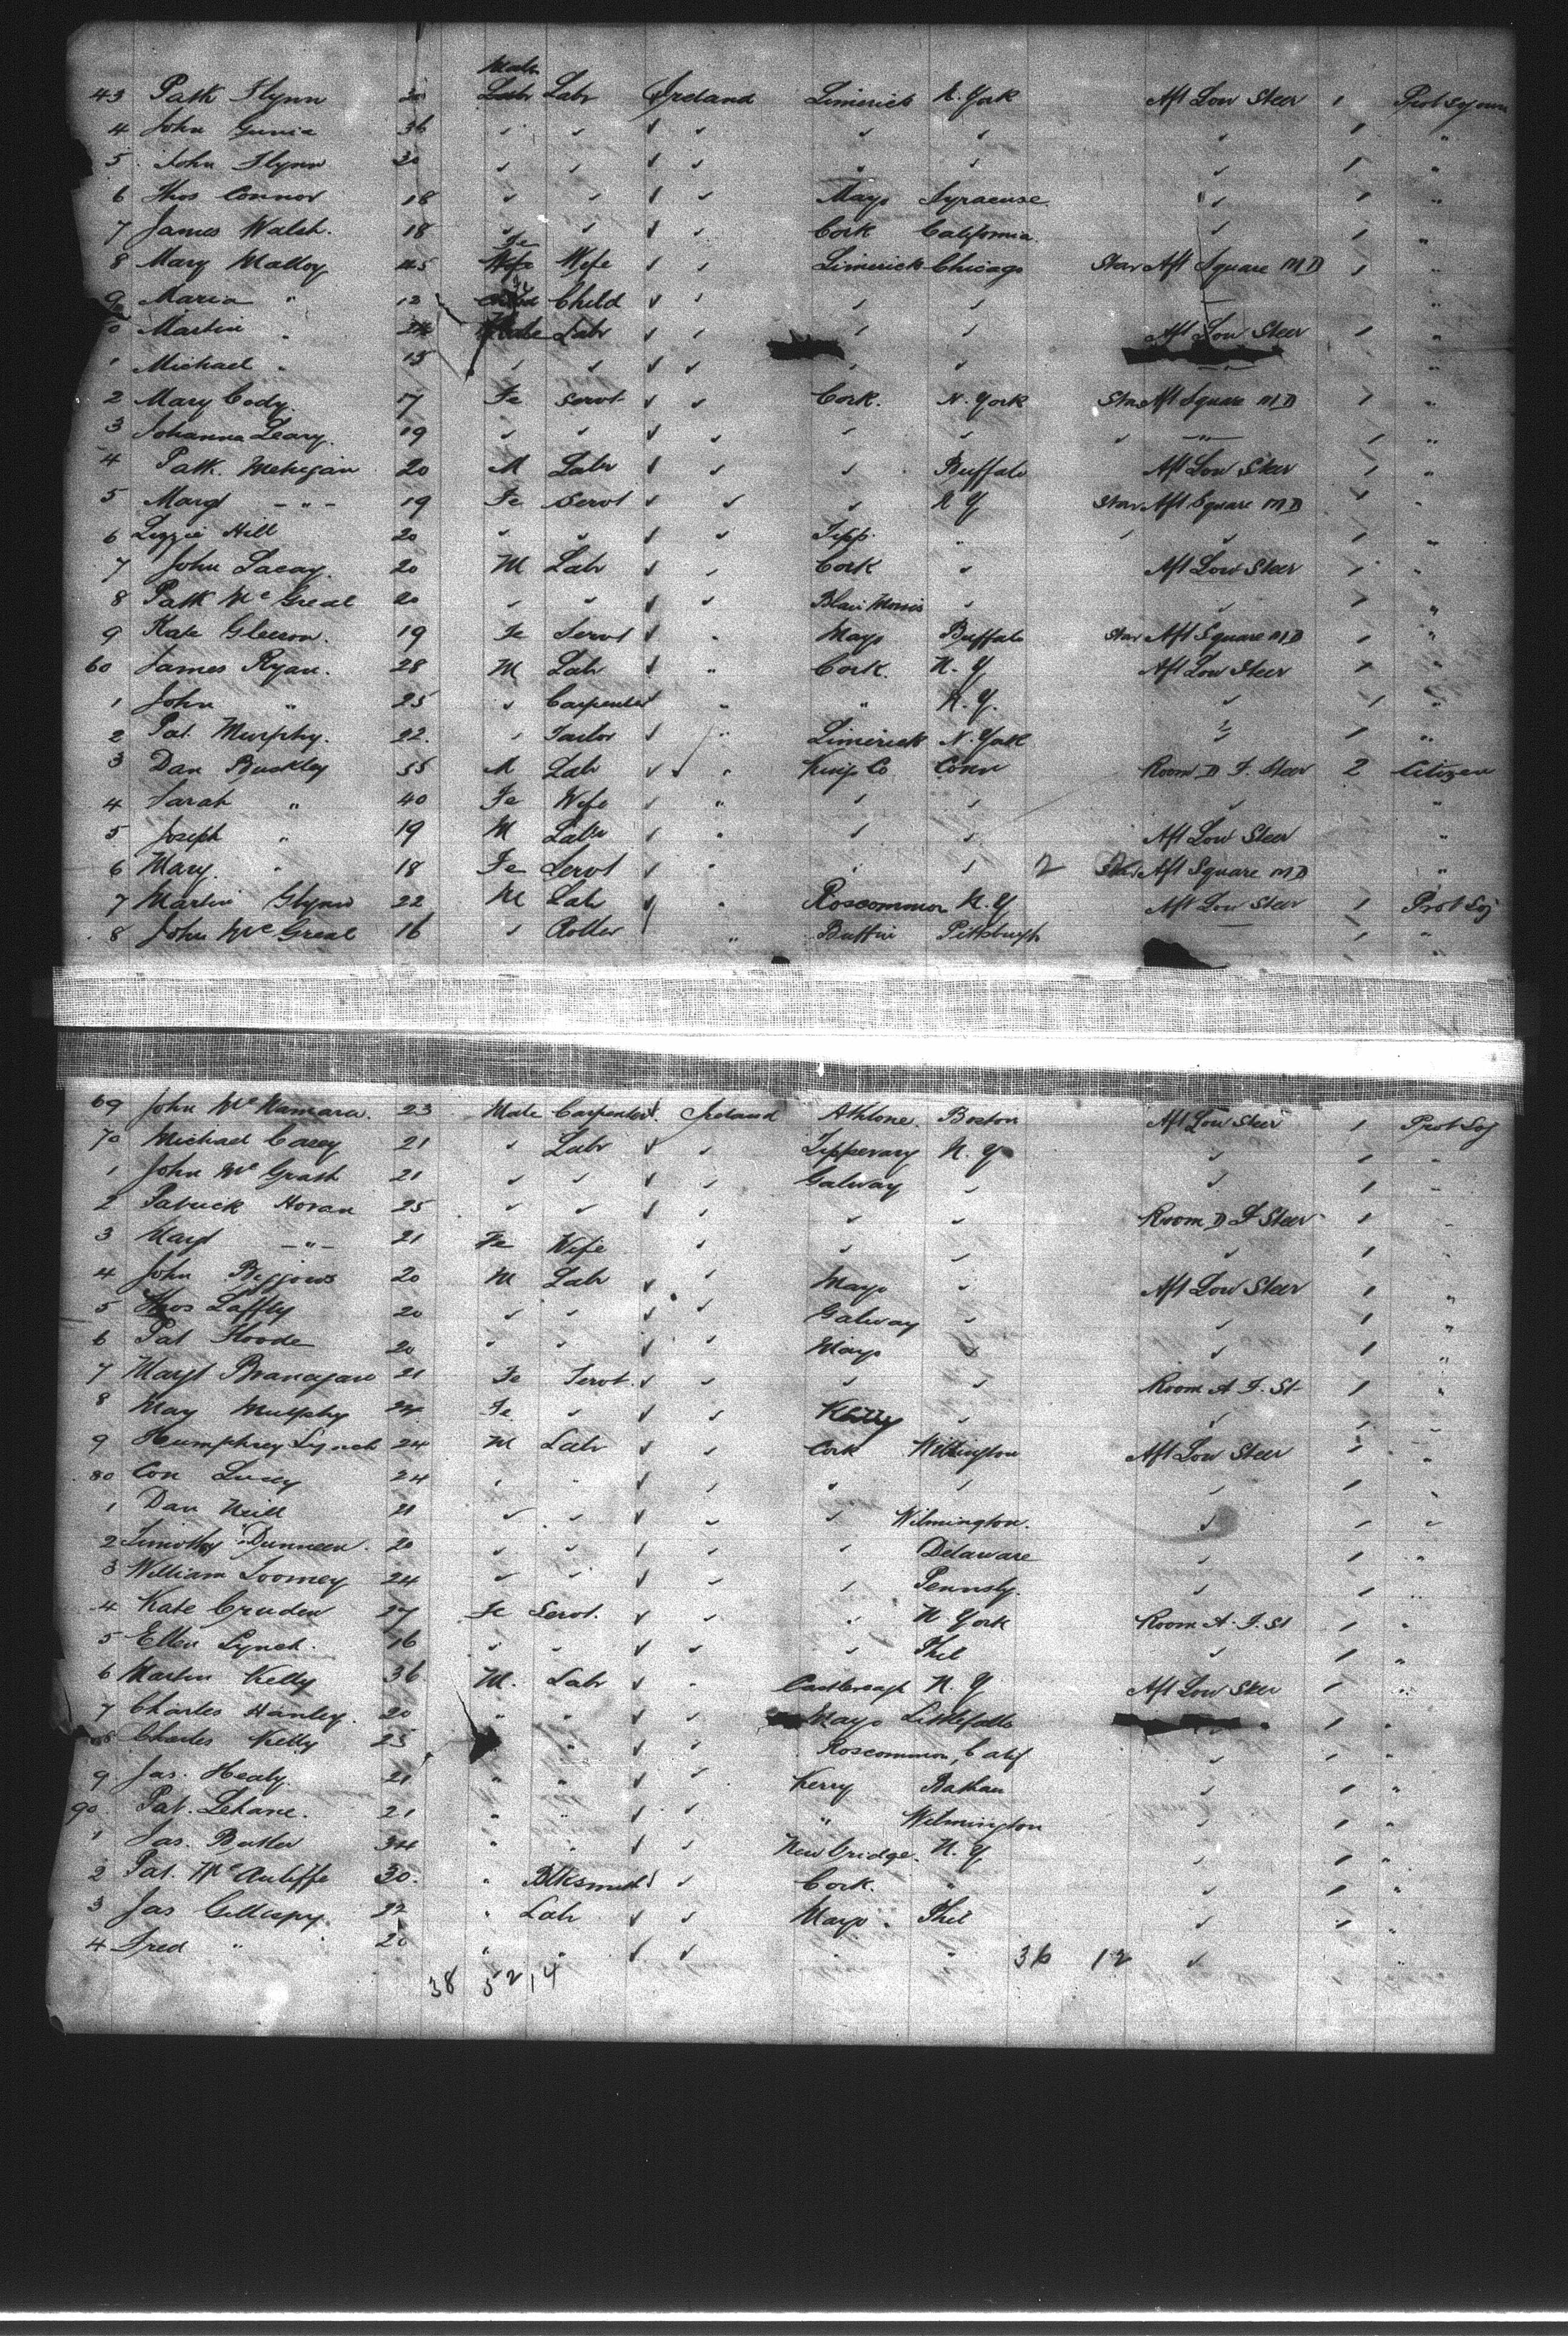 43 Patk Flynn 30 Male Labr Ireland Limerick N. York Aft Low Steer 1 Prot Sojourn
4 John 36 ✓ ✓ ✓ ✓ ✓ ✓ ✓ 1 "
5 John Flynn 30 ✓ ✓ ✓ ✓ ✓ ✓ ✓ 1 "
6 Thos Connor 18 ✓ ✓ ✓ ✓ Mayo Syracuse ✓ 1 "
7 James Walsh. 18 ✓ ✓ ✓ ✓ Cork California. ✓ 1 "
8 Mary Malloy 45 Fe Wife ✓ ✓ Limerick Chicago Star Aft Square MD 1 "
9 Maria " 12 Child ✓ ✓ ✓ ✓ "
0 Martin " 24 Male Labr ✓ ✓ ✓ ✓ Aft Low Steer 1 "
1 Michael " 15 ✓ ✓ ✓ ✓ ✓ ✓ "
2 Mary Cody. 17 Fe Servt ✓ ✓ Cork. N. York Star Aft Square MD 1 "
3 Johanna Leary. 19 ✓ ✓ ✓ ✓ ✓ ✓ ✓ " 1 "
4 Patk. Mehigan 20 M Labr ✓ ✓ ✓ Buffalo Aft Low Steer 1 "
5 Margt " 19 Fe Servt ✓ ✓ ✓ N Y Star Aft Square MD 1 "
6 Lizzie Hill 20 ✓ ✓ ✓ ✓ Tipp. " ✓ ✓ 1 "
7 John Lacay. 20 M Labr ✓ ✓ Cork ✓ Aft Low Steer 1 "
8 Patk McGreal 20 ✓ ✓ ✓ ✓ ✓ ✓ 1 "
9 Kate Gleeson. 19 Fe Servt ✓ " Mayo Buffalo Star Aft Square MD 1 "
60 James Ryan. 28 M Labr ✓ " Cork. N. Y Aft Low Steer 1 "
1 John " 25 ✓ Carpenter ✓ " " N. Y. ✓ 1 "
2 Pat. Murphy. 22. ✓ Tailor ✓ " Limerick N. York ✓ 1 "
3 Dan Buckley 55 M Labr ✓ " Kings Co Conn Room D F. Steer 2 Citizen
4 Sarah " 40 Fe Wife ✓ " ✓ ✓ ✓ "
5 Joseph " 19 M Labr ✓ " ✓ ✓ Aft Low Steer "
6 Mary. " 18 Fe Servt ✓ " ✓ ✓ 2 Star Aft Square MD "
7 Martin Glynn 22 M Labr ✓ " Roscommon N. Y Aft Low Steer 1 Prot Soj
8 John McGreal 16 ✓ ✓ " Pittsburgh 1 "
69 John McNamara. 23 Male Carpenter ✓ Ireland Athlone. Boston Aft Low Steer 1 Prot Soj
70 Michael Casey 21 ✓ Labr ✓ ✓ Tipperary N. Y ✓ 1 "
1 John McGrath 21 ✓ ✓ ✓ ✓ Galway ✓ ✓ 1 "
2 Patrick Horan 25 ✓ ✓ ✓ ✓ ✓ ✓ Room D F Steer 1 "
3 Margt " 21 Fe Wife ✓ ✓ ✓ ✓ 1 "
4 John 20 M Labr ✓ ✓ Mayo ✓ Aft Low Steer 1 "
5 Thos Laffey 20 ✓ ✓ ✓ ✓ Galway ✓ ✓ 1 "
6 Pat 20 ✓ ✓ ✓ ✓ Mayo ✓ ✓ 1 "
7 Margt Branagan 21 Fe Servt. ✓ ✓ ✓ ✓ Room A F. St 1 "
8 May Murphy 24 Fe ✓ ✓ ✓ ✓ ✓ 1 "
9 Humphrey Lynch 24 M Labr ✓ ✓ Cork Aft Low Steer 1 "
80 Con Lucey 24 ✓ ✓ ✓ ✓ ✓ ✓ ✓ 1 "
1 Dan Neill 21 ✓ ✓ ✓ ✓ ✓ Wilmington. ✓ 1 "
2 Timothy Dunneen. 20 ✓ ✓ ✓ ✓ ✓ Delaware ✓ 1 "
3 William Toomey 24 ✓ ✓ ✓ ✓ ✓ Pennsly. ✓ 1 "
4 Kate Cruden 27 Fe Servt. ✓ ✓ ✓ N. York Room A. F. St 1 "
5 Ellen Lynch. 16 ✓ ✓ ✓ ✓ ✓ Phil ✓ 1 "
6 Martin Kelly 36 M. Labr ✓ " Castlereagh N. Y Aft Low Steer 1 "
7 Charles Hanley. 20 " " ✓ ✓ Mayo Littlefalls " 1 "
88 Charles Kelly 25 " ✓ ✓ Roscommon, Calif ✓ 1 "
9 Jas. Healy. 21 " " ✓ ✓ Kerry ✓ 1 "
90. Pat. Lehane. 21 " " ✓ ✓ " Wilmington ✓ 1 "
1 Jas. Butler 34 " " ✓ ✓ Newbridge. N. Y ✓ 1 "
2 Pat. McAuliffe 30. " Blksmith ✓ ✓ Cork. " ✓ 1 "
3 Jas Gillespy. 22 " Labr ✓ ✓ Mayo. Phil ✓ 1 "
4 Fred " 20 " " ✓ ✓ " " 36 12 ✓ "
38 52 14